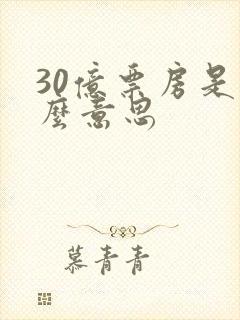 30億票房是
麼意思
慕青青